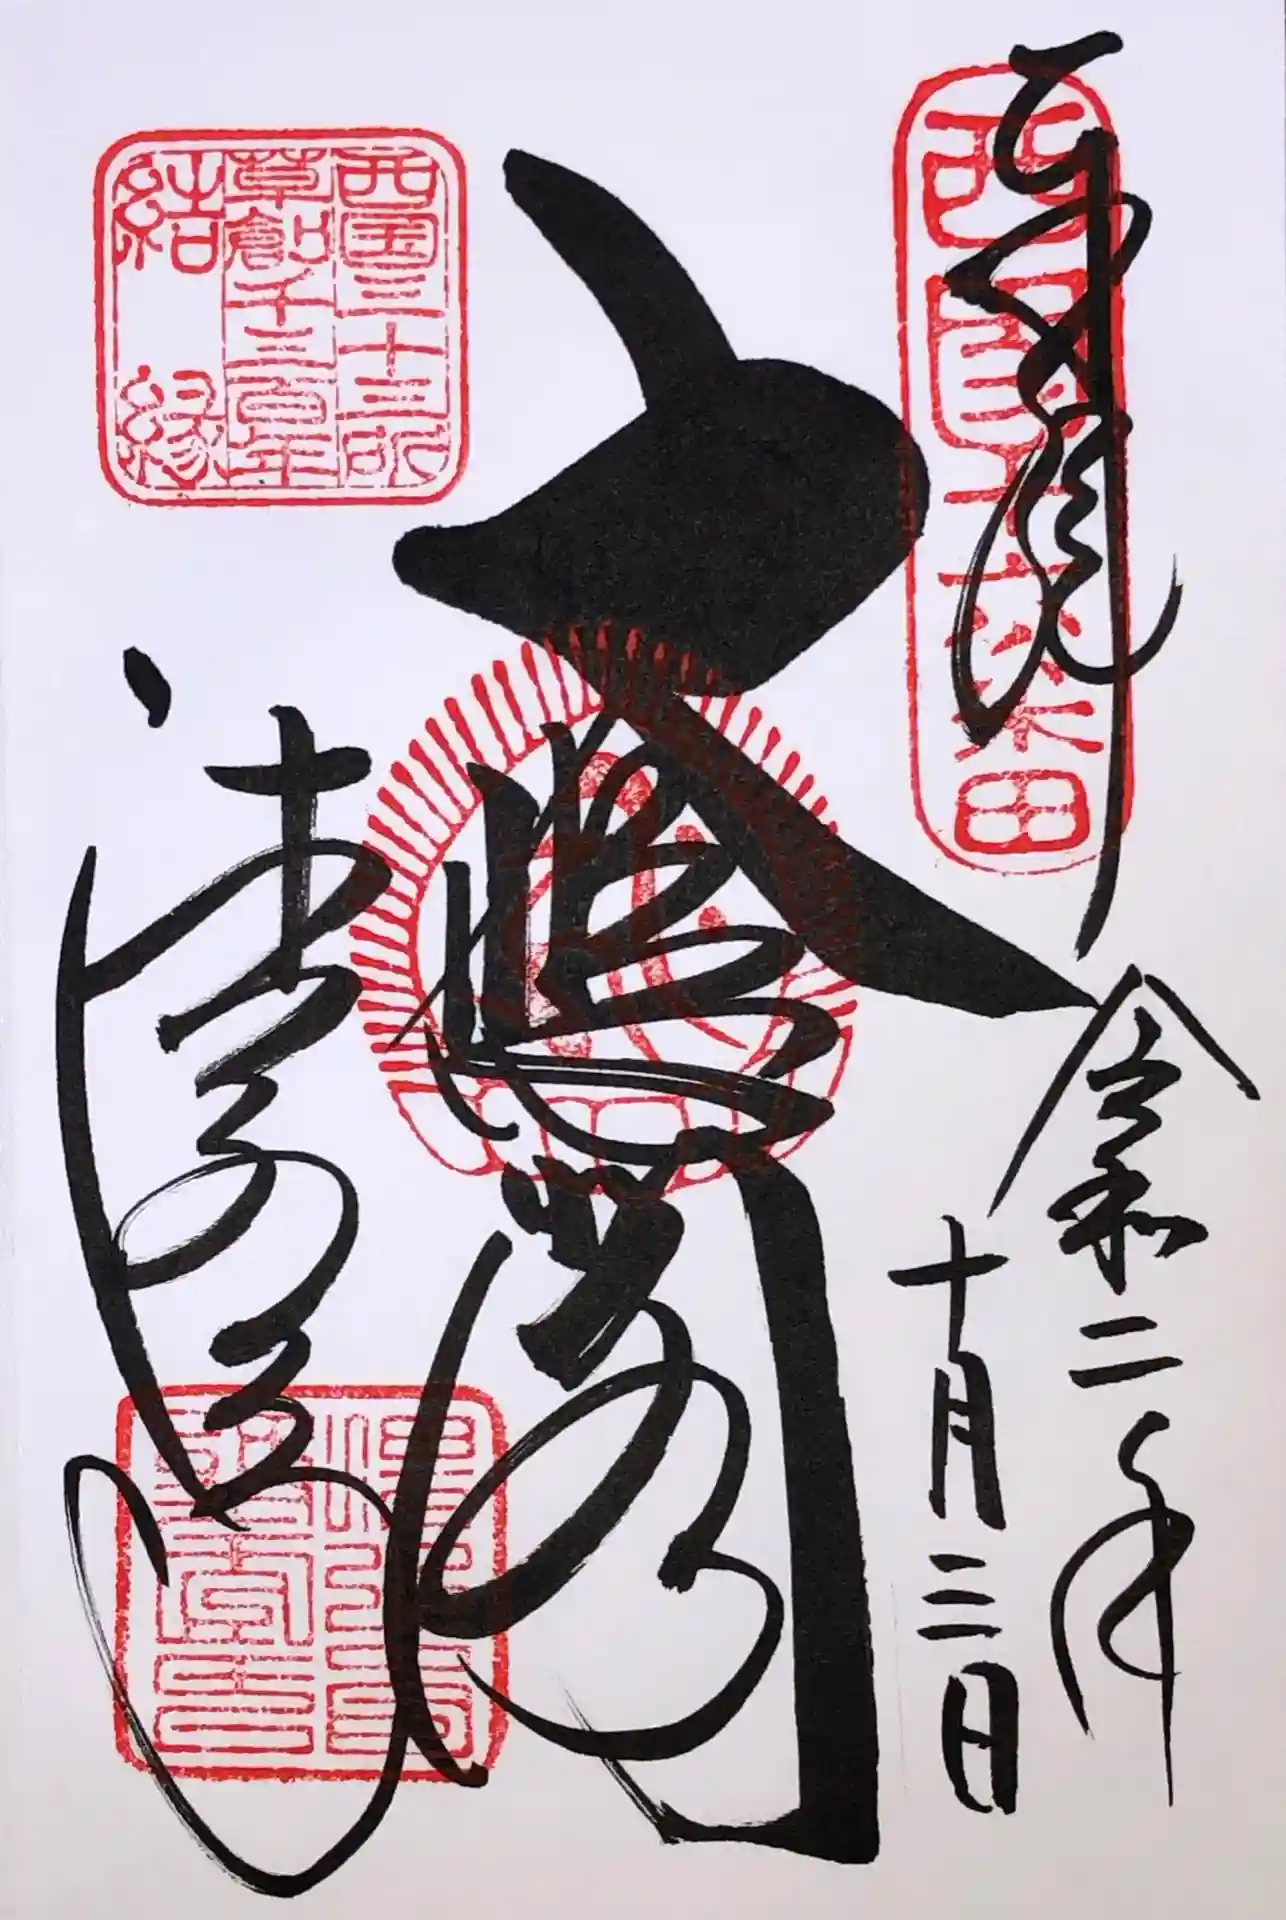 奉拝
西国十六番
令和二年
十月三日
大悲閣
西国三十三所
草創千三百年
結縁
清水寺